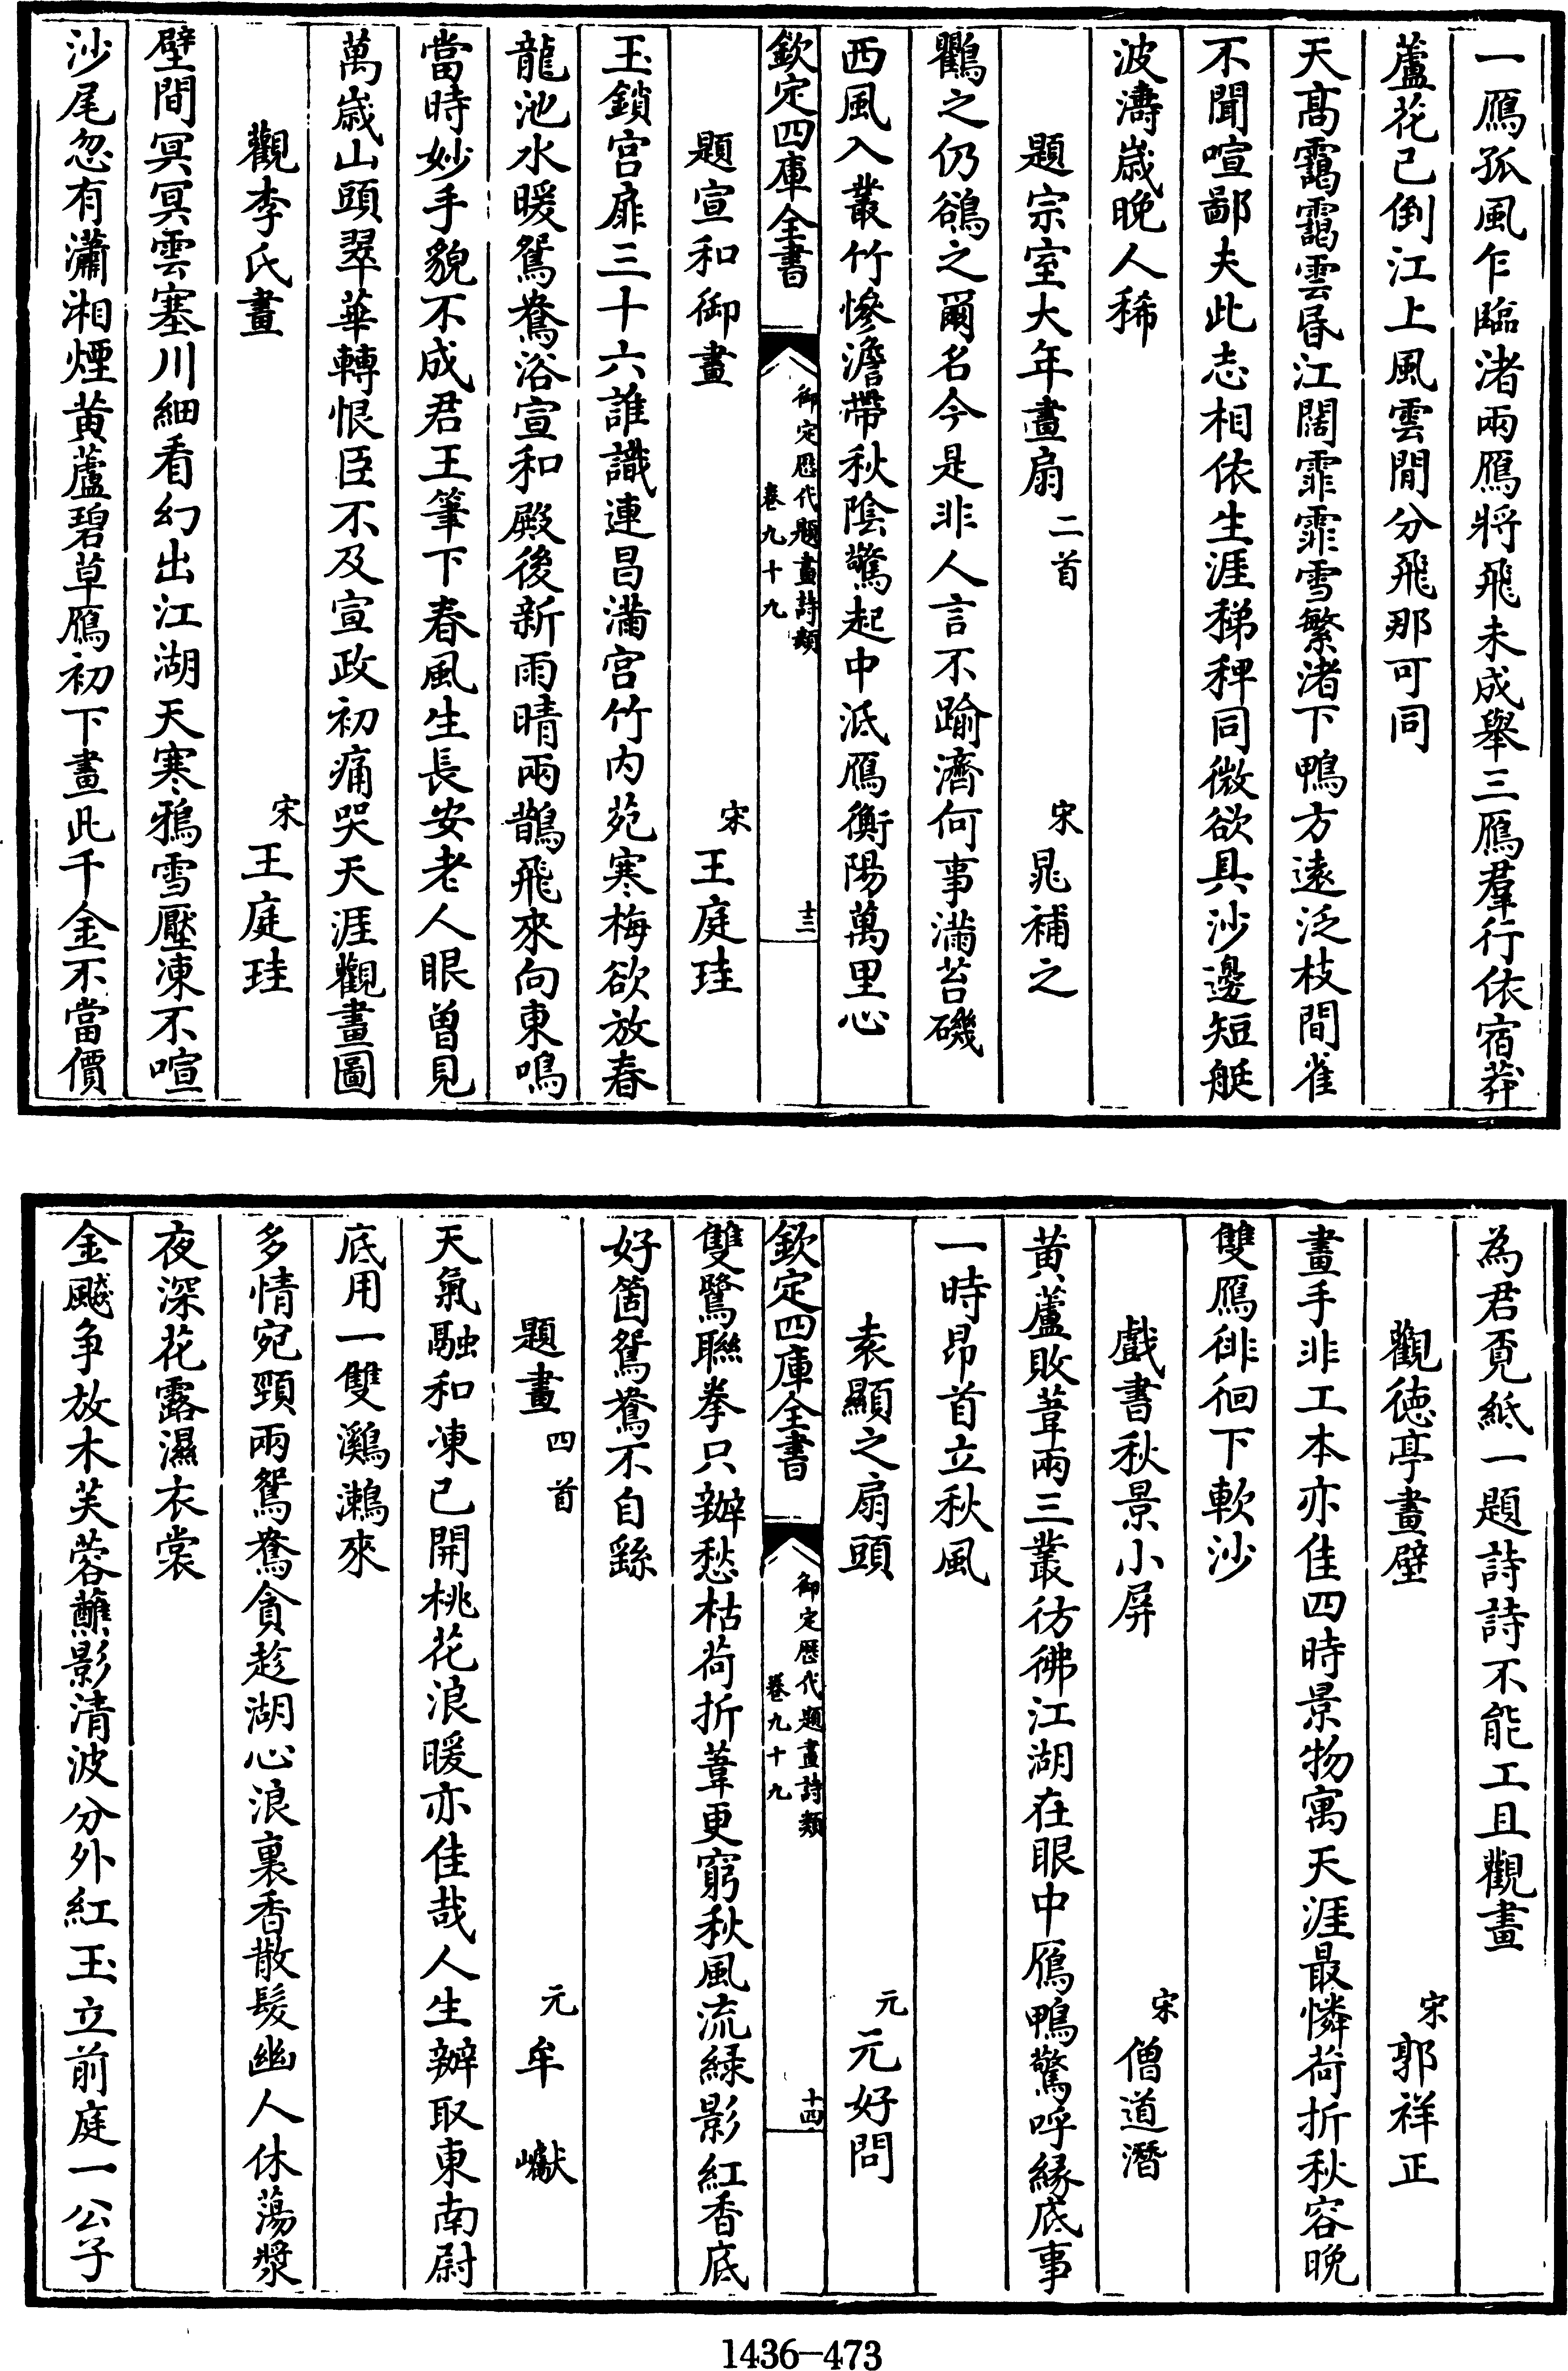 一鴈孤風乍臨渚兩鴈將飛未成舉三鴈羣行依宿莽
蘆花已倒江上風雲間分飛那可同
天髙靄靄雲昬江闊霏霏雪繁渚下鴨方遠泛枝間雀
不聞喧鄙夫此志相依生涯稊稗同微欲具沙邊短艇
波濤嵗晚人稀
題宗室大年畫扇二首
宋晁補之
鸛之仍鵒之爾名今是非人言不踰濟何事滿苔磯
西風入叢竹慘澹帶秋隂驚起中泜鴈衡陽萬里心
欽定四庫全書
御定厯代題畫詩類
卷九十九
十三
題宣和御畫
宋王庭珪
玉鎖宫扉三十六誰識連昌滿宫竹内苑寒梅欲放春
龍池水暖鴛鴦浴宣和殿後新雨晴兩鵲飛來向東鳴
當時妙手貌不成君王筆下春風生長安老人眼曽見
萬嵗山頭翠華轉恨臣不及宣政初痛哭天涯觀畫圖
觀李氏畫
宋王庭珪
壁間冥冥雲塞川細看幻出江湖天寒鴉雪壓凍不喧
沙尾忽有瀟湘煙黄蘆碧草鴈初下畫此千金不當價
為君覔紙一題詩詩不能工且觀畫
觀徳亭畫壁
宋郭祥正
畫手非工本亦佳四時景物寓天涯最憐荷折秋容晚
雙鴈徘徊下軟沙
戲書秋景小屏
宋僧道潛
黄蘆敗葦兩三叢彷彿江湖在眼中鴈鴨驚呼縁底事
一時昂首立秋風
袁顯之扇頭
元元好問
欽定四庫全書
御定厯代題畫詩類
卷九十九
十四
雙鷺聯拳只辦愁枯荷折葦更窮秋風流緑影紅香底
好箇鴛鴦不自繇
題畫四首
元牟巘
天氣融和凍已開桃花浪暖亦佳哉人生辦取東南尉
底用一雙鸂鶒來
多情宛頸兩鴛鴦貪趁湖心浪裏香散髮幽人休蕩槳
夜深花露濕衣裳
金颷争放木芙蓉蘸影清波分外紅玉立前庭一公子
1436-473